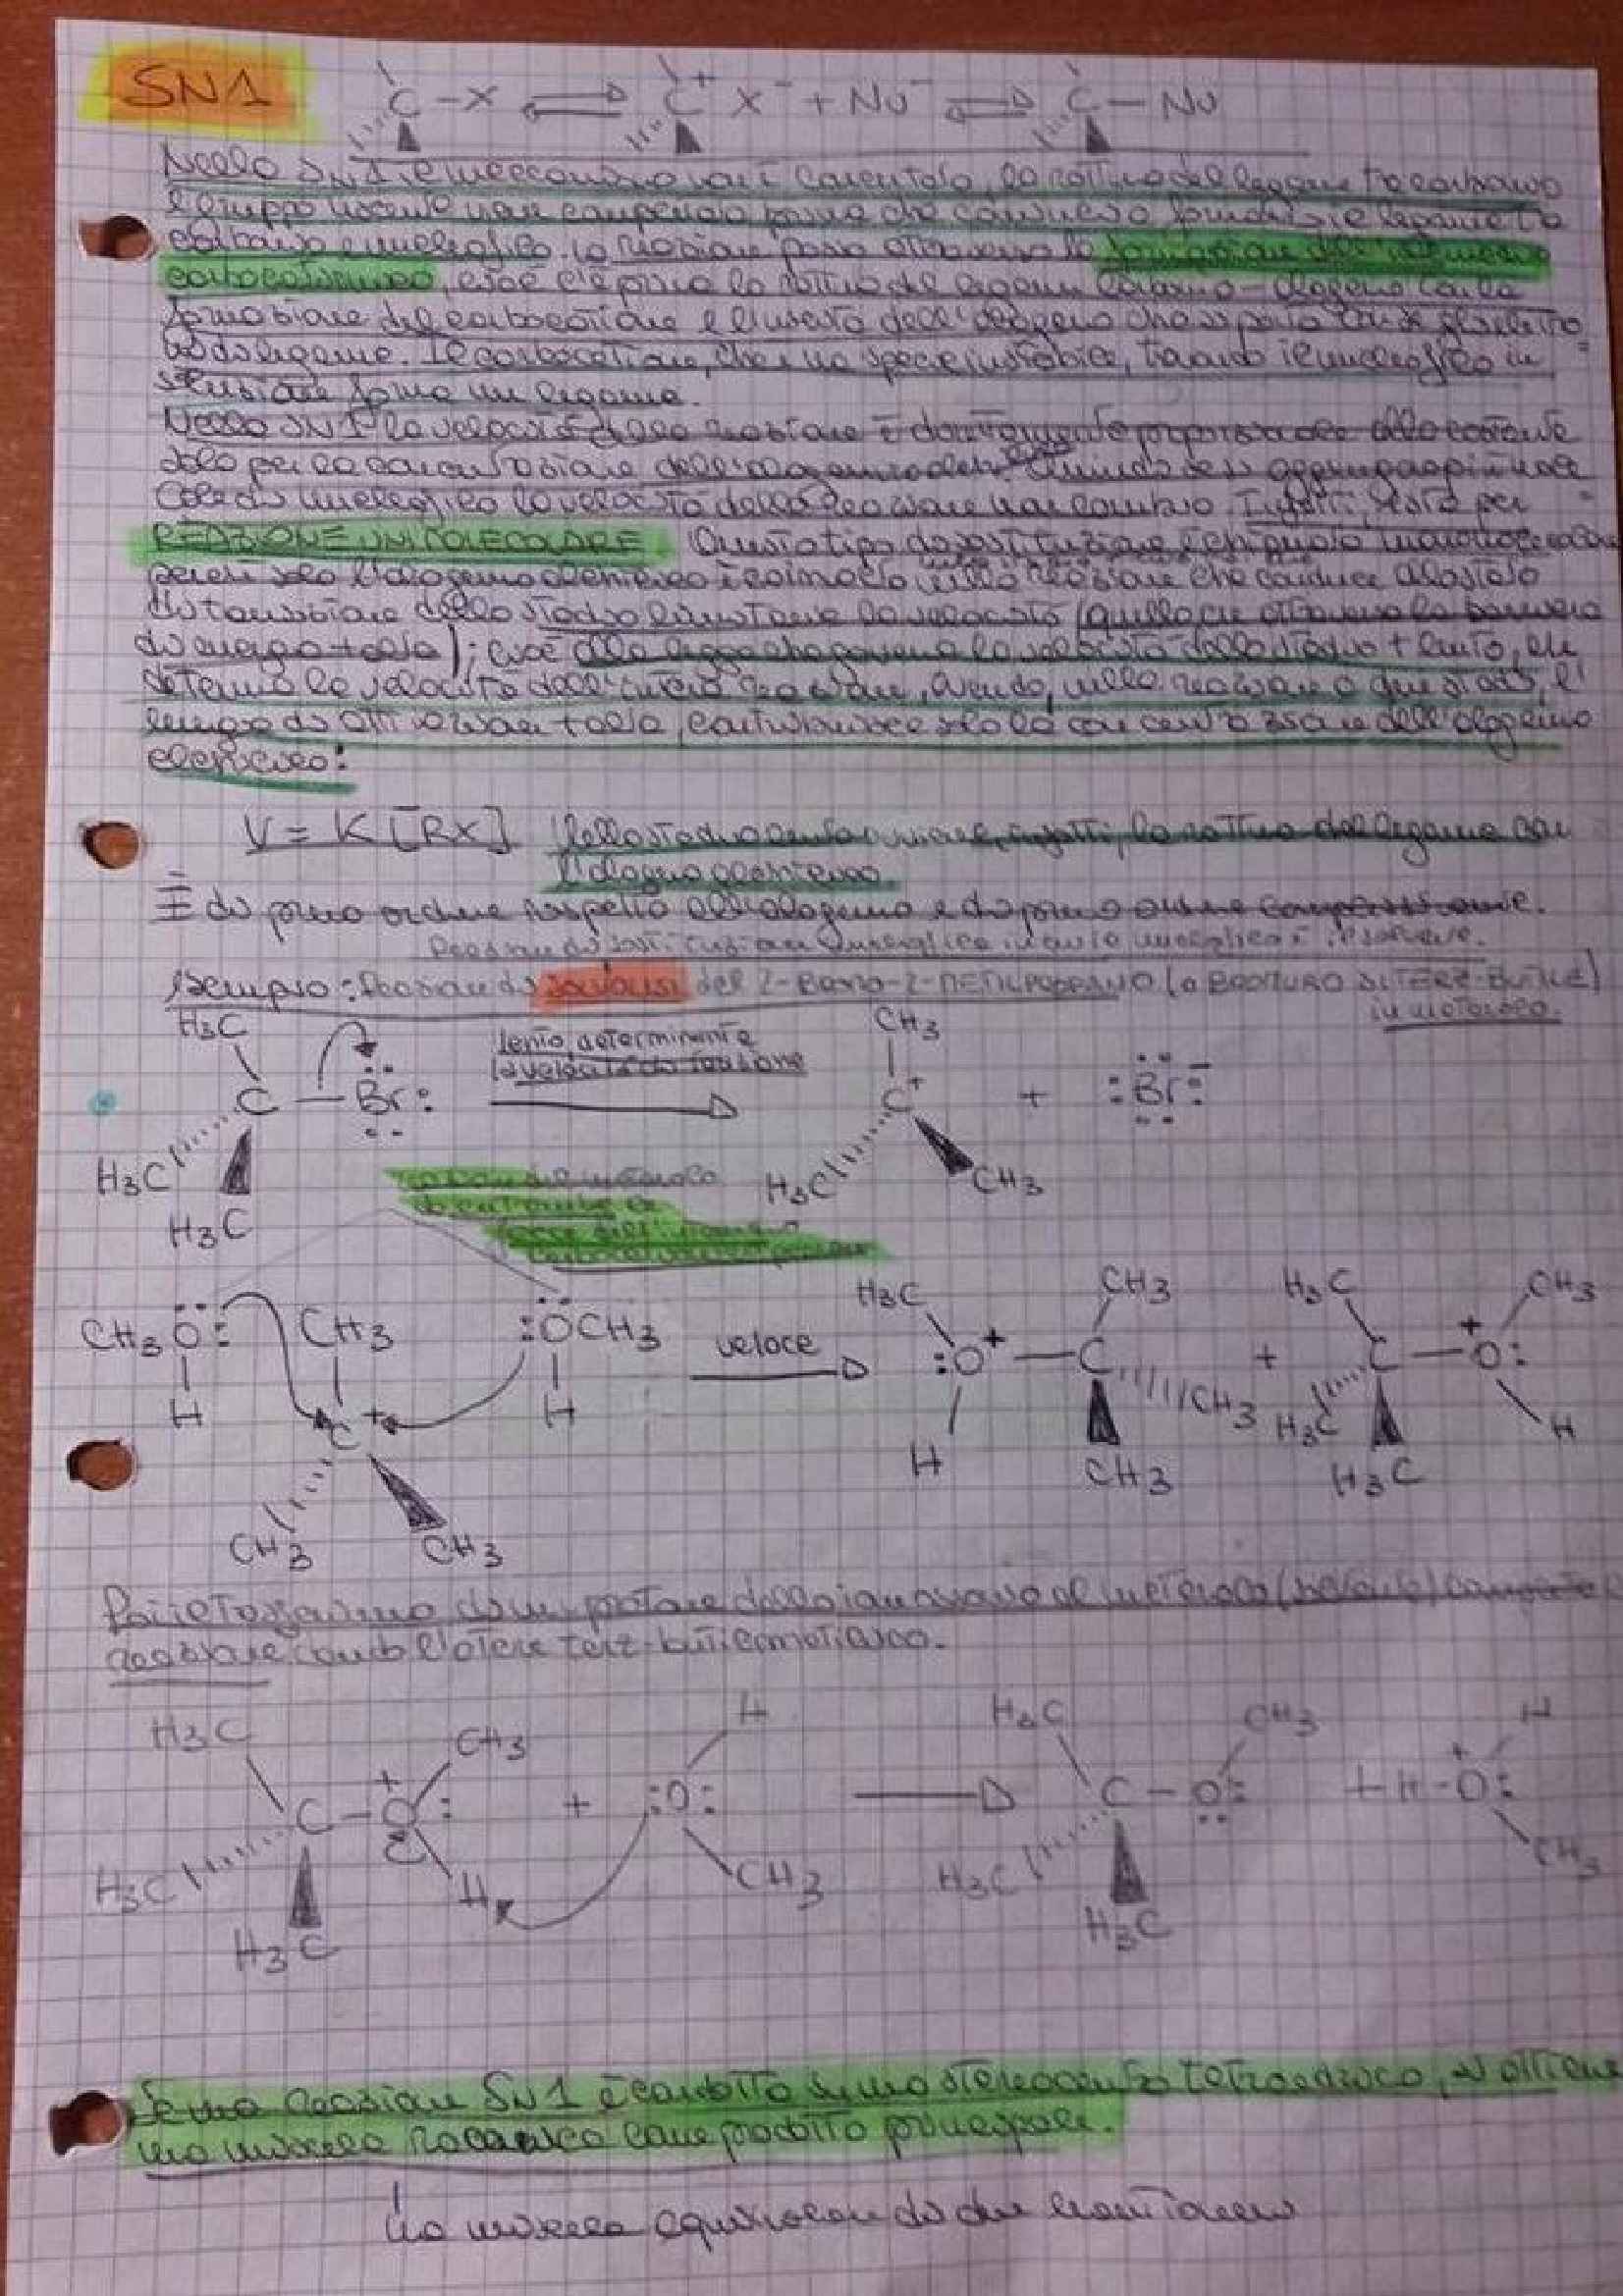 SN1
C - X ⇌ C+ X- + Nu- ⇌ C - Nu
Nella SN1 il meccanismo non è concertato, la rottura del legame tra carbonio
e gruppo uscente viene completata prima che cominci a formarsi il legame tra
carbonio e nucleofilo. La reazione passa attraverso la formazione dell'intermedio
carbocationico, cioè c'è prima la rottura del legame carbonio-alogeno con la
formazione del carbocatione e l'uscita dell'alogeno che si porta con sé gli elettroni
di legame. Il carbocatione, che è una specie instabile, trovando il nucleofilo in
soluzione forma un legame.
Nella SN1 la velocità della reazione è direttamente proporzionale alla costante
solo per la concentrazione dell'alogenuro alch. se si aggiunge più
di nucleofilo la velocità della reazione non cambia. Infatti, sta per
REAZIONE UNIMOLECOLARE Questo tipo di sostituzione è chiamata
perché solo l'alogenuro alchilico è coinvolto nella reazione che conduce allo stato
di transizione dello stadio limitante la velocità (quello che attraversa la barriera
di energia + alta); cioè alla legge che governa la velocità dello stadio + lento, che
determina la velocità dell'intera reazione, avendo, nella reazione a due stadi, l'
energia di attivazione + alta, contribuisce solo la concentrazione dell'alogenuro
alchilico:
V = K [RX] Nello stadio lento avviene, infatti, la rottura del legame con
l'alogenuro alchilico.
È di primo ordine rispetto all'alogenuro e di primo ordine complessivamente.
Reazione di sostituzione nucleofila in cui il nucleofilo è il solvente.
Esempio: Reazione di solvolisi del 2-BROMO-2-METILPROPANO (o BROMURO DI TERZ-BUTILE)
in metanolo.
H3C CH3
lento, determinante
la velocità di reazione
C - Br: C+ + :Br:-
H3C H3C CH3
H3C
del metanolo
da entrambe le
facce dell'intermedio
carbocationico
H3C CH3 H3C CH3
CH3 O: CH3 :OCH3 veloce :O+ - C + C - O+:
H H CH3 H3C H
C+ H CH3 H3C
CH3 CH3
Poi il trasferimento di un protone dallo ione ossonio al metanolo (solvente) completa la
reazione dando l'etere terz-butilmetilico.
H3C CH3 H H3C CH3 H
C - O+: + :O: C - O: + H - O+:
H3C H CH3 H3C CH3
H3C H3C
Se una reazione SN1 è condotta su uno stereocentro tetraedrico, si ottiene
una miscela racemica come prodotto principale.
Una miscela equimolare di due enantiomeri